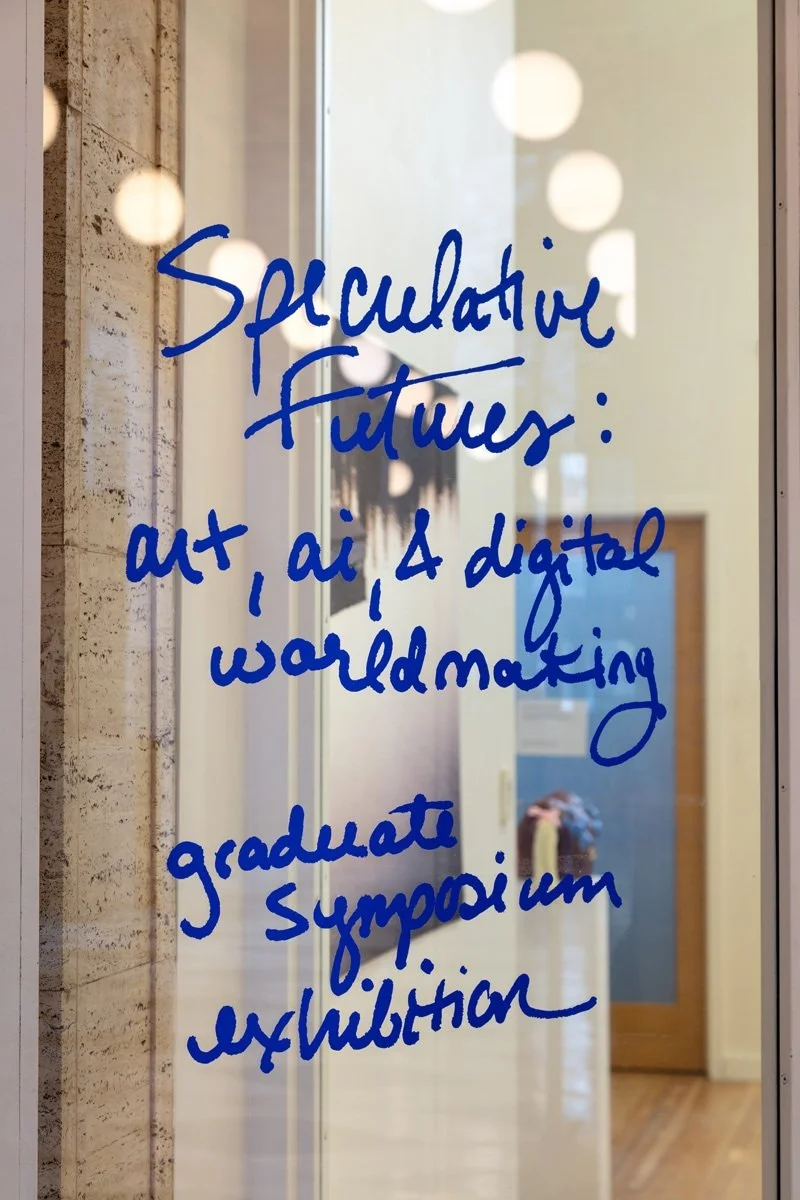 Speculative
Futures:
art, ai, & digital
worldmaking
graduate
symposium
exhibition